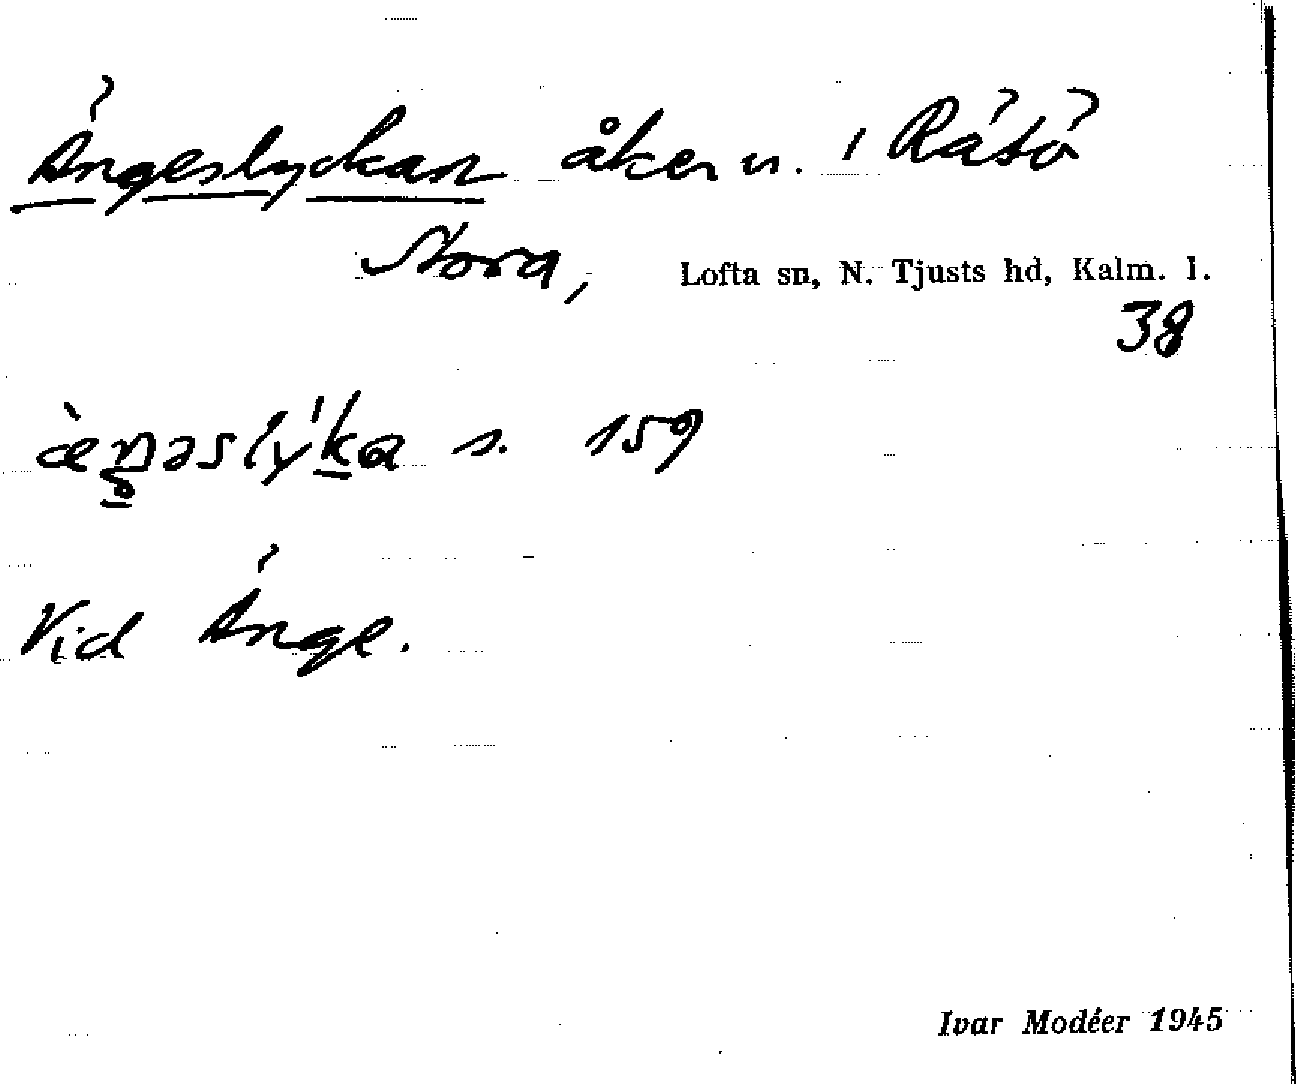 Ängeslyckan åker n. i Råtö
Stora, Lofta sn, N. Tjusts hd, Kalm. l.
38
æ̀ŋəslýka s. 159
Vid Änge.
Ivar Modéer 1945